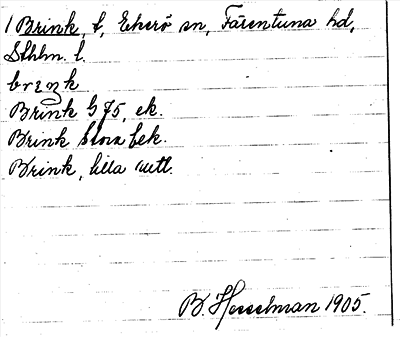 1 Brink, t, Ekerö sn, Färentuna hd,
Sthlm. l.
Brink G 75, ek.
Brink Stora bek.
Brink, lilla uttl.
B. Hesselman 1905.